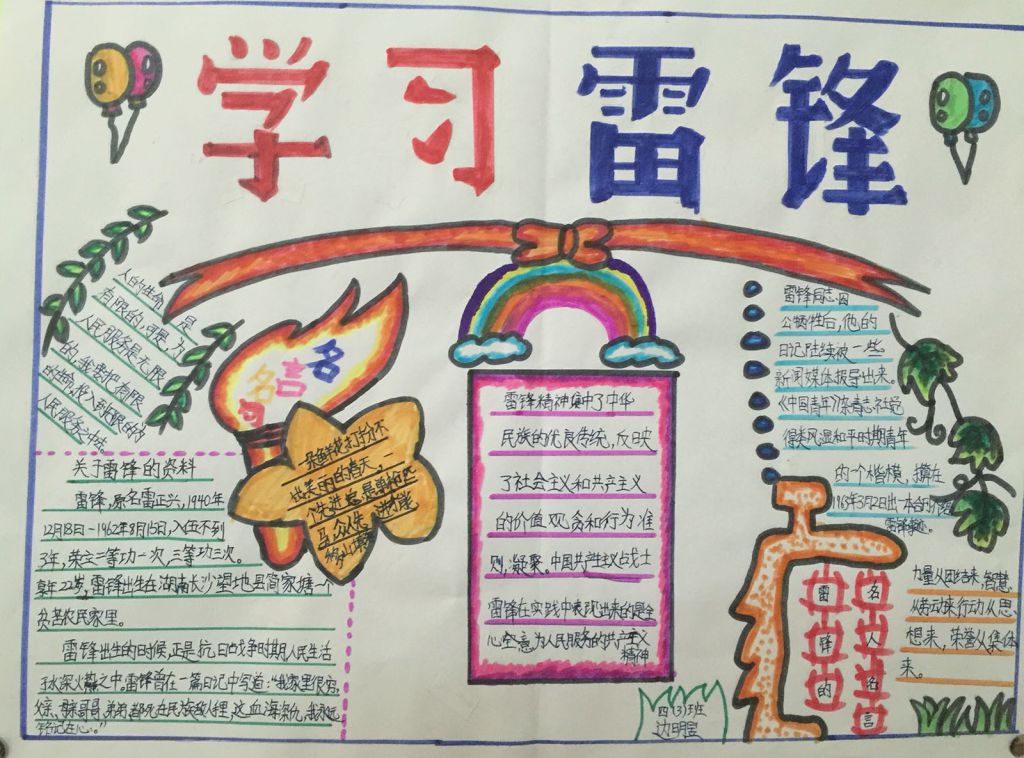 学习雷锋
人的生命是
有限的,可是为
人民服务是无限
的,我要把有限
的生命,投入到无限的为
人民服务之中去。
名言名句
一朵鲜花打扮不
出美丽的春天,一
个先进总是单枪匹
马,众人先进才能
移山填海
关于雷锋的资料
雷锋,原名雷正兴,1940年
12月18日-1962年8月15日,入伍不到
3年,荣立二等功一次,三等功三次。
享年22岁,雷锋出生在湖南长沙望地县简家塘一个
贫苦农民家里。
雷锋出生的时候,正是抗日战争时期人民生活
于水深火热之中。雷锋曾在一篇日记中写道:"我家里很穷,
父亲、哥哥、弟弟都死在民族敌人手里,这血海深仇,我永远
铭记在心。"
雷锋精神集中了中华
民族的优良传统,反映
了社会主义和共产主义
的价值观念和行为准
则,凝聚。中国共产主义战士
雷锋在实践中表现出来的是全
心全意为人民服务的共产主义
精神
雷锋同志因
公牺牲后,他的
日记陆续被一些
新闻媒体报导出来。
《中国青年》杂志社
得类风湿和平时期青年
的个楷模,
1963年3月2日出一本
雷锋的
名人名言
力量从团结来,智慧
从劳动来行动从思
想来,荣誉从集体
来。
四(3)班
边明昱